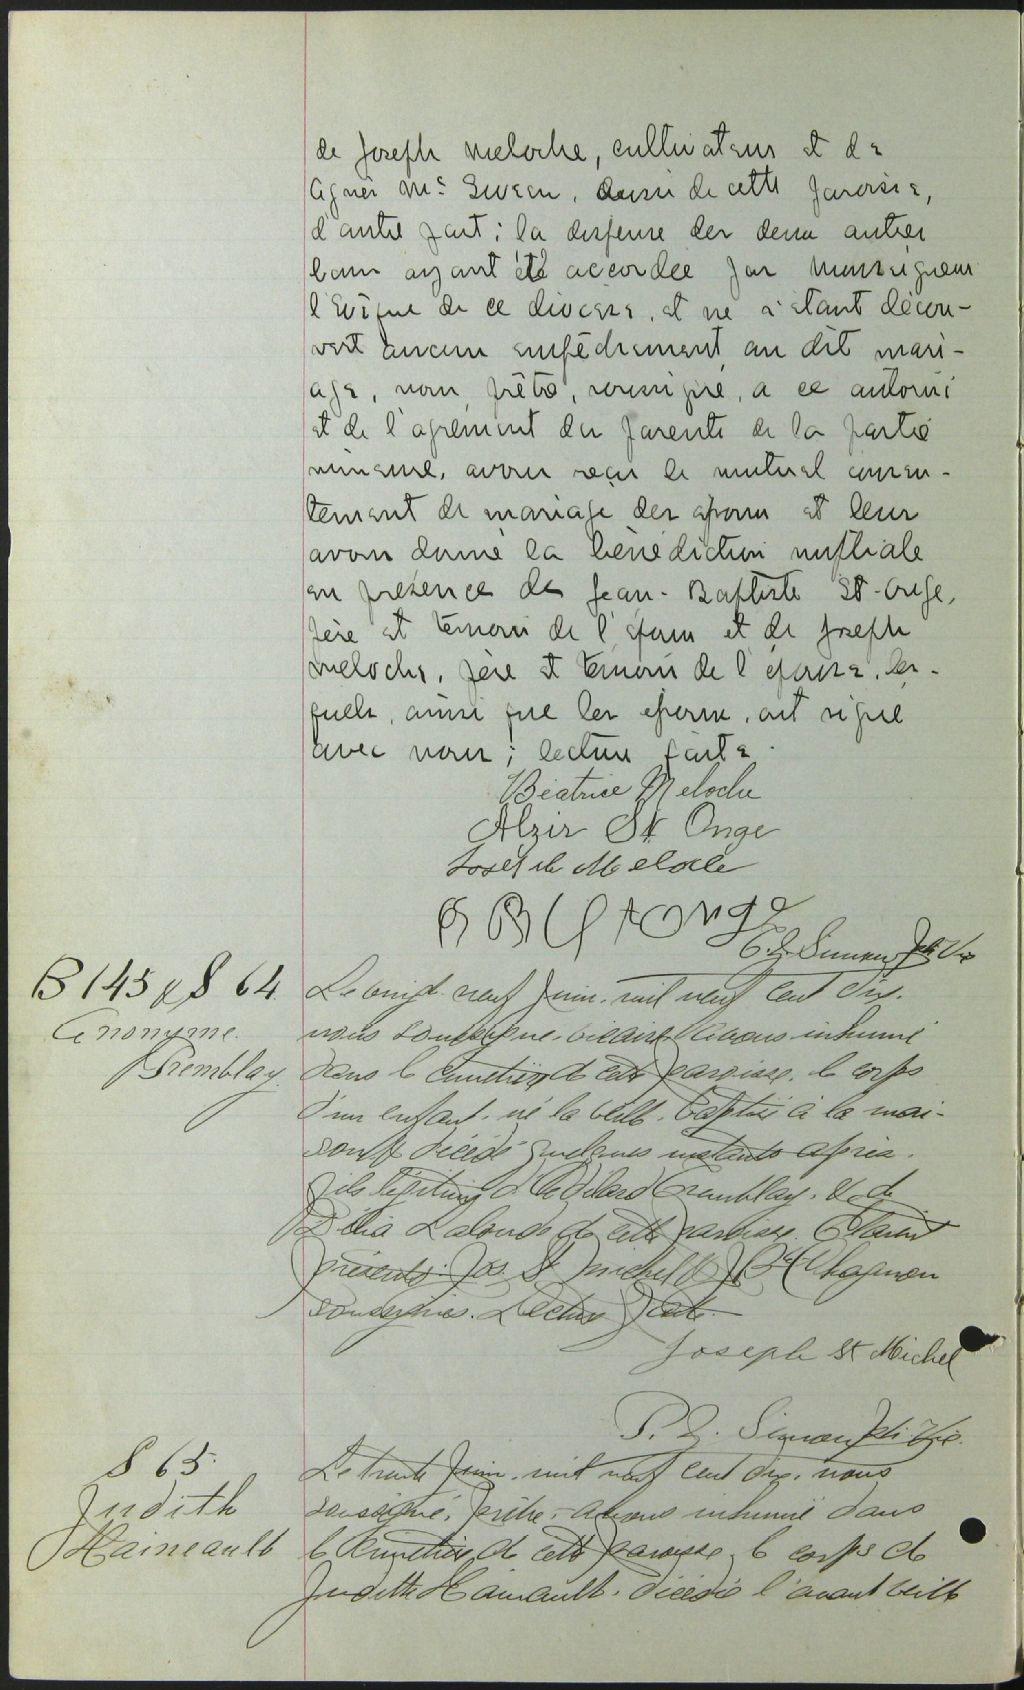 de Joseph Meloche, cultivateur et de
Agnès Mc Ewen, aussi de cette paroisse,
d'autre part; la dispense des deux autres
bans ayant été accordée par Monseigneur
l'Evêque de ce diocèse, et ne s'étant décou-
vert aucun empêchement au dit mari-
age, nous, prêtre, soussigné, a ce autorisé
et de l'agrément des parents de la partie
mineure, avons reçu le mutuel consen-
tement de mariage des époux et leur
avons donné la bénédiction nuptiale
en présence de Jean-Baptiste St-Onge,
père et témoin de l'époux et de Joseph
Meloche, père et témoin de l'épouse, les-
quels, ainsi que les époux, ont signé
avec nous; lecture faite.
Béatrice Meloche
Alzir St Onge
Joseph Meloche
J B St Onge
Simon Ptr Vic
B 145 & S 64
Anonyme
Tremblay
Le vingt-neuf Juin, mil neuf cent dix,
nous soussigné, vicaire, avons inhumé
dans le cimetière de cette paroisse, le corps
d'un enfant, né la veille, baptisé à la mai-
son & décédé quelques instants après,
fils légitime d' Tremblay, & de
Délia Lalonde de cette paroisse. Etaient
présents: Jos. St Michel & J Bte Chagnon
soussignés. Lecture faite.
Joseph St Michel
Simon Ptr Vic.
S 65.
Judith
Haineault
Le trente Juin, mil neuf cent dix, nous
soussigné, prêtre, avons inhumé dans
le cimetière de cette paroisse, le corps de
Judith Hainault, décédée l'avant veille